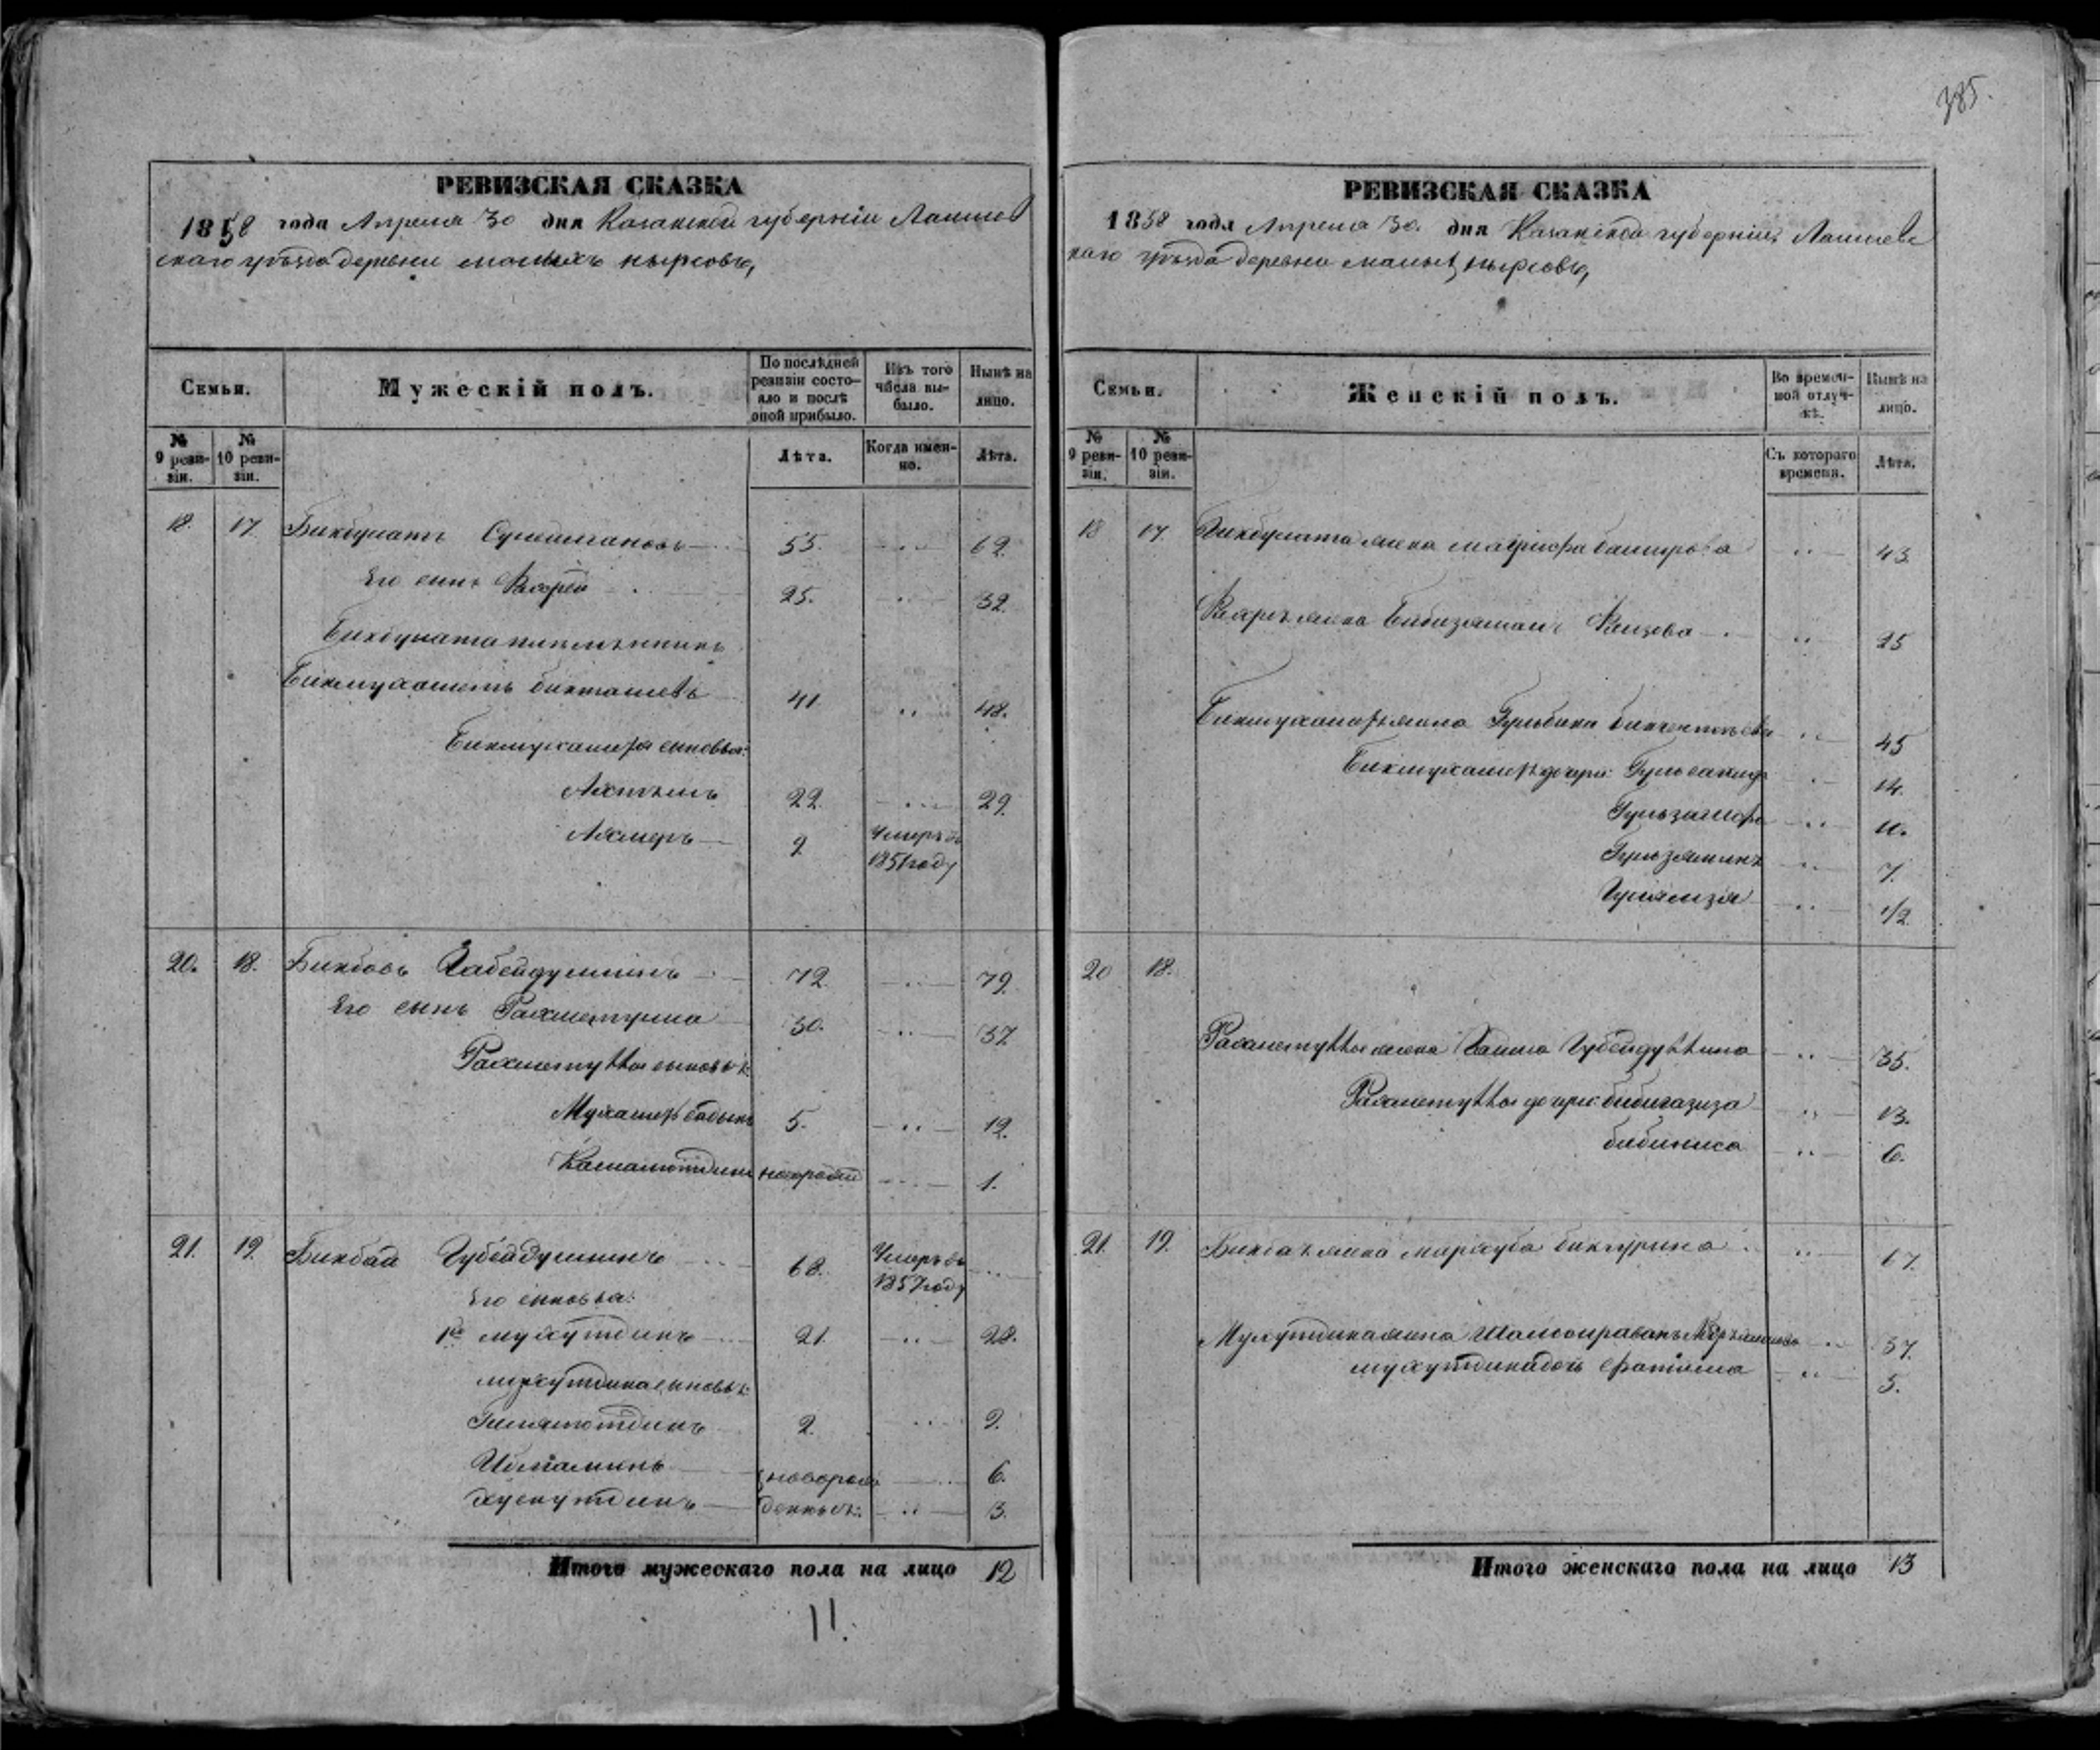 385.
РЕВИЗСКАЯ СКАЗКА
1858 года Апреля 30 дня Казанской губерніи Лаишев
скаго уѣзда деревни малыхъ нырсовъ,
Семьи.
Мужескій полъ.
По послѣдней ревизіи состояло и послѣ оной прибыло.
Изъ того числа выбыло.
Нынѣ на лицо.
№ 9 ревизіи.
№ 10 ревизіи.
Лѣта.
Когда именно.
Лѣта.
18. 17. Бикбулатъ Сулеймановъ 55. 62.
Его сынъ 25. 32.
Бикбулата племянникъ
Бикмухаметь бикташевъ 41 48.
Бикмухаметя сыновья:
22. 29.
2 Умеръ въ 1851 году
20. 18. Бикбовъ Габейдуллинъ 72. 79.
Его сынъ Рахметулла 30. 37
Рахметуллы сыновья:
Мухаметь садыкъ 5. 12.
Камалютдинъ новорож 1.
21. 19. Бикбай Губейдуллинъ 68. Умеръ въ 1857 году
Его сыновья:
1й мухутдинъ 21. 28.
мухутдина сыновья:
Гилялютдинъ 2. 9.
новорож 6.
хуснутдинъ денныхъ: 3.
Итого мужескаго пола на лицо 12
11.
РЕВИЗСКАЯ СКАЗКА
1858 года Апреля 30. дня Казанской губерніи, Лаишевс
каго уѣзда деревни малыхъ нырсовъ,
Семьи.
Женскій полъ.
Во временной отлучкѣ.
Нынѣ на лицо.
№ 9 ревизіи.
№ 10 ревизіи.
Съ котораго времени.
Лѣта.
18 17. Бикбулата жена баширова 43
жена Бибизямал 25
Бикмухаметя жена Гульбика 45
Бикмухаметя дочери: 14.
11.
Гульзяминъ 7.
1/2
20 18.
Рахметуллы жена Губейдуллина 35.
Рахметуллы дочери: бибигазиза 13.
бибиниса 6.
21. 19. Бикбая жена мархуба биктурина 67.
Мухутдина жена 37.
мухутдина дочь фатима 5.
Итого женскаго пола на лицо 13